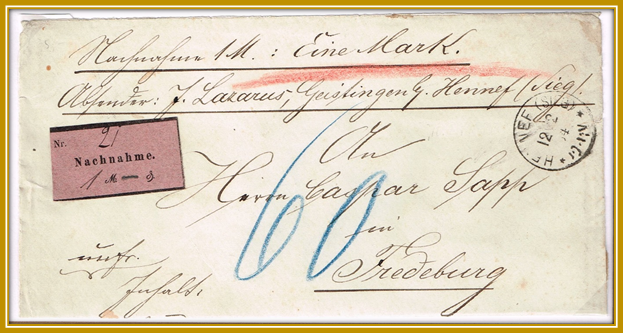 Nachnahme 1 M. : Eine Mark.
Absender: J. Lazarus, Geistingen b/ Hennef (Sieg).
HENNEF (SIEG)
12 2
* 5-6 N *
Nr. 21
Nachnahme.
1 M — ₰
An
Herrn Caspar Sapp
in
Fredeburg
60
Inhalt.